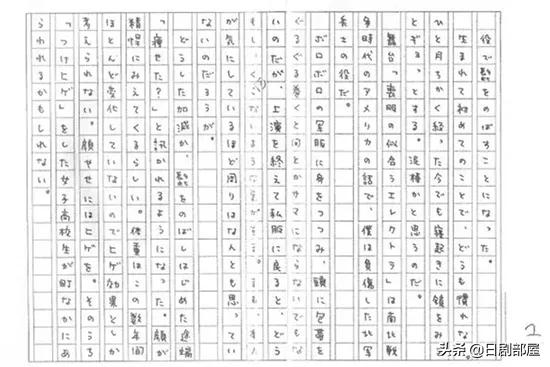 2
役で髭をのばすことになった。
生まれて初めてのことで、どうも慣れない。
ひと月ちかく経った今でも寝起きに鏡をみ
泥棒かと思うのだ。
舞台「喪服の似合うエレクトラ」は南北戦
争時代のアメリカの話で、僕は負傷した北軍
兵士の役だ。
ボロボロの軍服に身をつつみ、頭に包帯を
ぐるぐる巻くと何とかサマにならないでもな
いのだが、上演を終えて私服に戻ると、どう
が気にしているほど周りはなんとも思ってい
ないのだろうが。
どうした加減か、髭をのばしはじめた途端
「痩せた？」と訊かれるようになった。顔が
精悍にみえてくるらしい。体重はこの数年間
ほとんど変化していないのでヒゲ効果としか
考えられない。顔やせにはヒゲを。そのうち
「つけヒゲ」をした女子高校生が町なかにあ
らわれるかもしれない。
头条 @日剧部屋